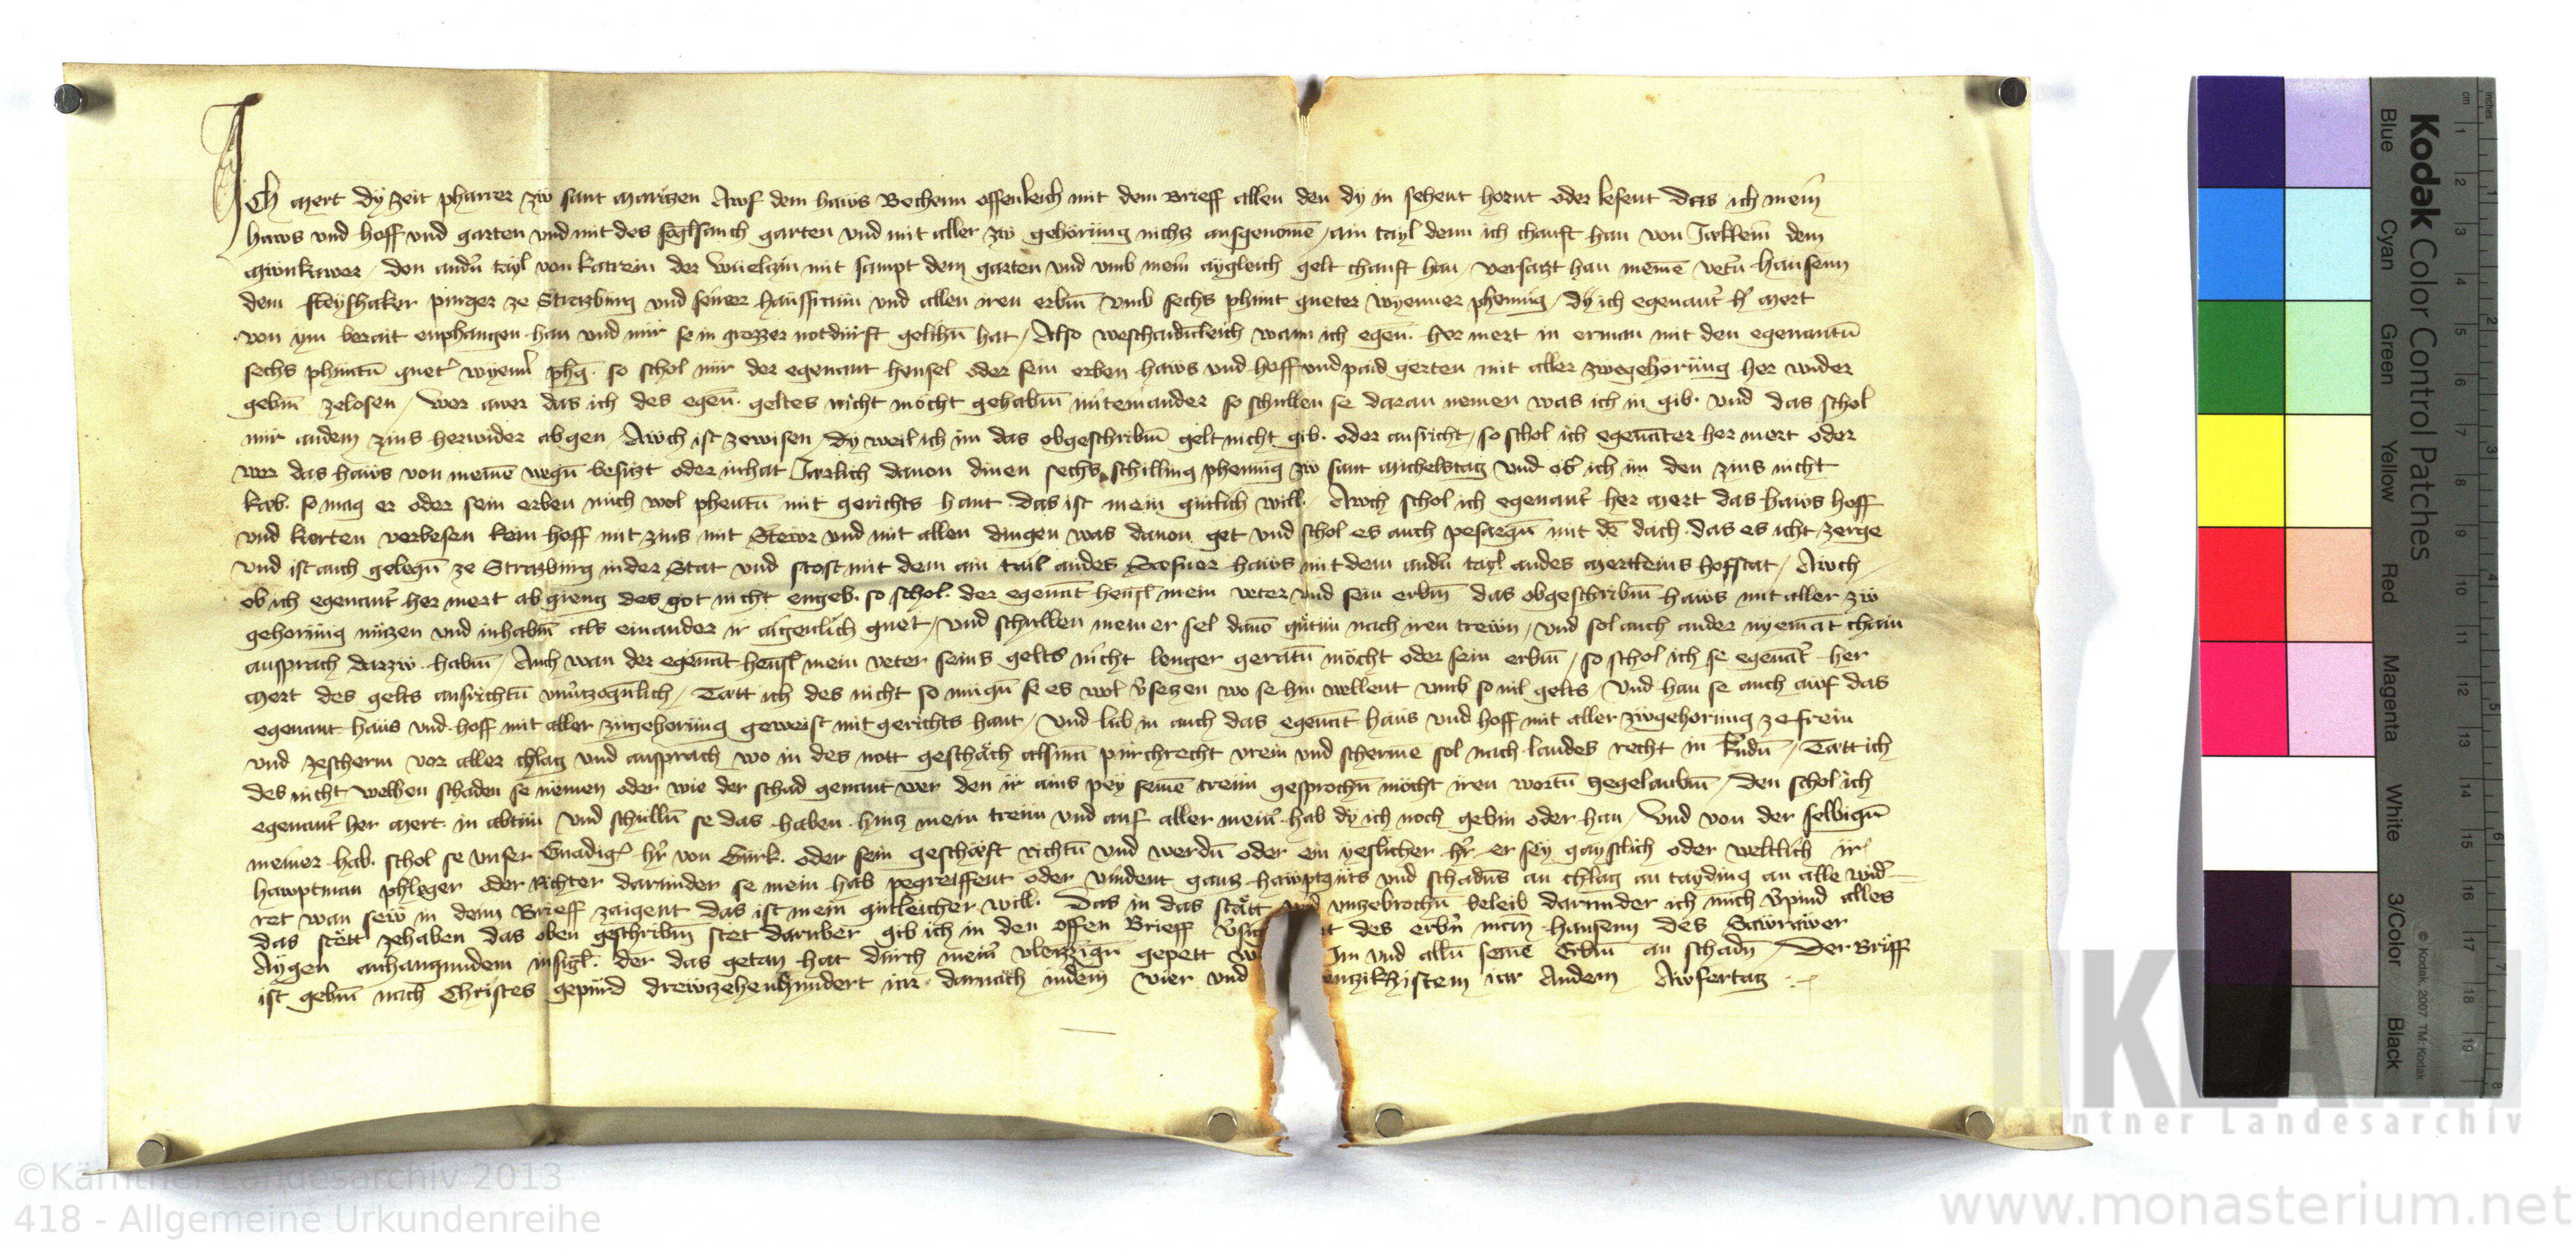 Ich mert dy zeit pharrer zw sant marten Awf dem haws Bechenn offenleich mit dem Brieff allen den dy in sehent hornt oder lesent das ich mein
haws vnd hoff vnd garten vnd mit des garten vnd mit aller zw gehörung nichs ausgenomē / ain tayl denn ich chauft han von Jaklein dem
den andn̄ tayl von katrein der mit sampt dem garten vnd vmb mein aygleich gelt chauft han / versatzt han meinē vetn̄ hansenn
dem purger ze Strazburg vnd seiner hausfraun vnd allen iren erbm̄ vmb sechs phunt gueter wyenner phenig / dy ich egenant h' mert
von ym berait enphangen han vnd mir se in grozzer notdurft gelihn̄ hat / Also weschaidn̄leich wann ich egen. her mert in erman mit den egenantn̄
sechs phuntn̄ guet' wyenn' phg. so schol mir der egenant hensel oder sein erben haws vnd hoff vnd paid gerten mit aller zwegehörung her wider
gebm̄ zelosen / Wer awer das ich des egen̄. geltes nicht mocht gehabm̄ miteinander so schullen se daran nemen was ich in gib. vnd das schol
mir andem zins herwider abgen / Awch ist zewisen / dy weil ich im das obgeschribm̄ gelt nicht gib. oder ausricht / so schol ich egenāter her mert oder
wer das haws von meinē wegn̄ besitzt oder inhat Jarlich dauon dinen sechs schilling phennig zw sant michelstag vnd ob ich im den zins nicht
kab. so mag er oder sein erben mich wol phentn̄ mit gerichts hant das ist mein gutlich will. Awch schol ich egenant her mert das haws hoff
vnd kerten verbesen kein hoff mit zins mit Stewr vnd mit allen dingen was dauon get vnd schol es auch pesargn̄ mit dē dach das es icht zerge
vnd ist auch gelegn̄ ze Strazburg in der Stat vnd stost mit dem ain tail andes haws mit dem andn̄ tayl andes mertleins hofstat / Awch
ob ich egenant her mert ab gieng des got nicht engeb. so schol der egenāt hensl mein veter vnd sein erbm̄ das obgeschribm̄ haws mit aller zw
gehorung nützen vnd inhabm̄ als einander ir aigenlich guet / vnd schullen meiner sel dauō gutun nach iren trewn / vnd sol auch ander nyemāt chain
ansprach darzw habm̄ / Auch wan der egenāt hensl mein veter seins gelts nicht lenger geratn̄ möcht oder sein erbm̄ / so schol ich se egenāt her
mert des gelts ausrichtn̄ vnuerzogn̄lich / Tatt ich des nicht so mugn̄ se es wol v'setzen wo se hin wellent vmb so uil gelts / Vnd han se auch awf das
egenant haus vnd hoff mit aller zugehorung geweist mit gerichts hant / Vnd lub in auch das egenāt haus vnd hoff mit aller zwgehorung ze frein
vnd ze scherm vor aller chlag vnd ansprach wo in des nott geschäch alsmā purchrecht vrein vnd scherme sol nach landes recht in / Tatt ich
des nicht welhen schaden se nemen oder wie der schad genant wer den ir ains pey seinē trewn gesprochn̄ möcht iren wortn̄ zegelaubm̄ / den schol ich
egenant her mert in abtun vnd schulln̄ se das haben hintz mein trewn vnd auf aller mein' hab dy ich noch gebin oder han / Vnd von der selbign̄
meiner hab. schol se vnser Gnadig' h'r von Gurk. oder sein geschäft richtn̄ vnd werdn̄ oder ein yeslicher h'r er sey gaystlich oder weltlich ir
hawptman phleger oder Richter darunder se mein hab pegreiffent oder vindent ganz hawptguts vnd schadn̄s an chlag an tayding an alle wid'
ret wan sew in denn Brieff zaigent das ist mein gutleicher will. Das in das stätt vnd vnzebrochn̄ beleib darunder ich mich v'pind alles
das stätt zehaben das oben geschribm̄ stet daruber gib ich in den offen Brieff v'sig t des erb'n man hansenn des
Aygen anhangundem insigl. der das getan hat durch mein' vleizzign̄ gepett Im vnd alln̄ seinē Erbm̄ an schadn̄ / Der Briff
ist gebm̄ nach Christes gepurd drewczehenhundert iar darnach indem vier vnd enzikhistem iar Andem Awfertag
Kodak Color Control Patches
Blue Cyan Green Yellow Red Magenta White 3/Color Black
© Kodak, 2007 TM: Kodak
cm 1 2 3 4 5 6 7 8 9 10 11 12 13 14 15 16 17 18 19
inches 1 2 3 4 5 6 7 8
KLA
Kärntner Landesarchiv
©Kärntner Landesarchiv 2013
418 - Allgemeine Urkundenreihe
www.monasterium.net